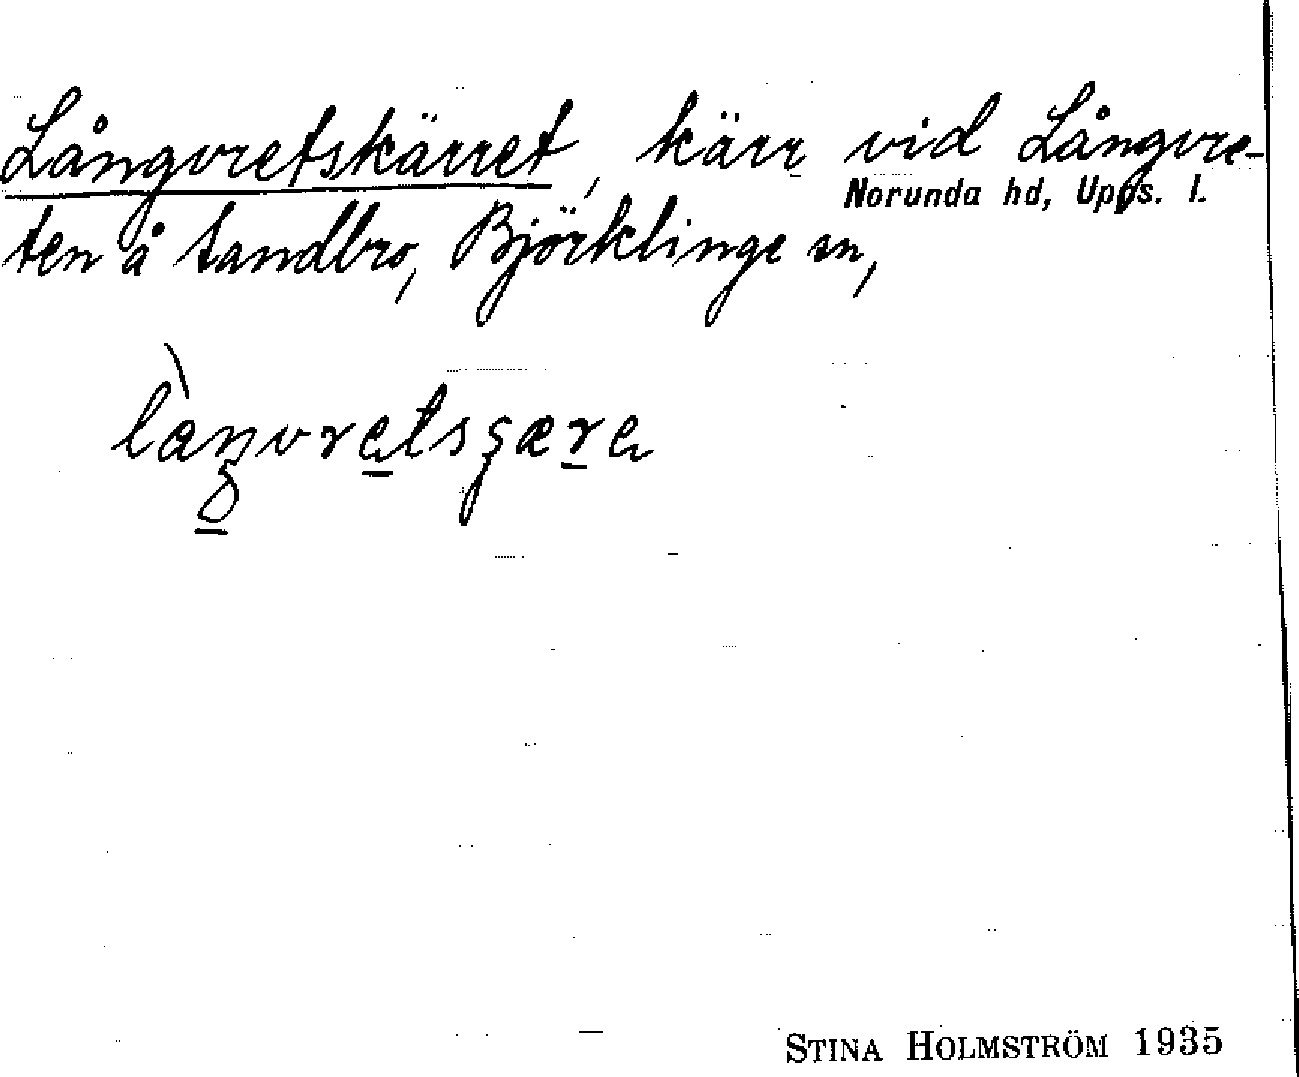 Långvretskärret, kärr vid Långvre-
Norunda hd, Upps. l.
ten å Sandbro, Björklinge sn,
STINA HOLMSTRÖM 1935